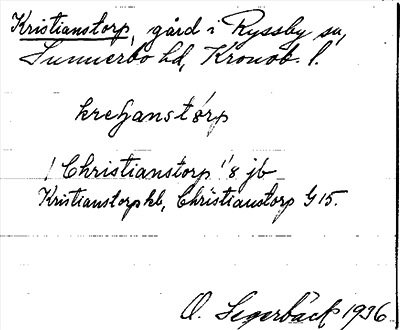 Kristianstorp, gård i Ryssby sn,
Sunnerbo hd, Kronob. l.
kreʃanstórp
! Christianstorp 1/8 jb
Kristianstorp kb, Christianstorp G 15.
O. Segerbäck 1936